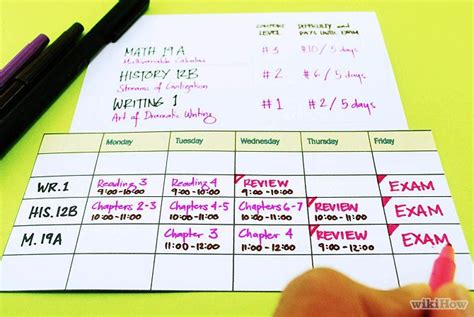 COMFORT LEVEL DIFFICULTY and DAYS UNTIL EXAM
MATH 19A #3 #10 / 5 days
Multivariable Calculus
HISTORY 12B #2 #6 / 5 days
Streams of Civilization
WRITING 1 #1 #2 / 5 days
Art of Dramatic Writing
Monday Tuesday Wednesday Thursday Friday
WR.1 Reading 3 Reading 4 REVIEW EXAM
9:00-10:00 9:00-10:00 9:00-10:00
HIS.12B Chapters 2-3 Chapters 4-5 Chapters 6-7 REVIEW EXAM
10:00-11:00 10:00-11:00 10:00-11:00 10:00-11:00
M.19A Chapter 3 Chapter 4 REVIEW EXAM
11:00-12:00 11:00-12:00 9:00-12:00
wikiHow